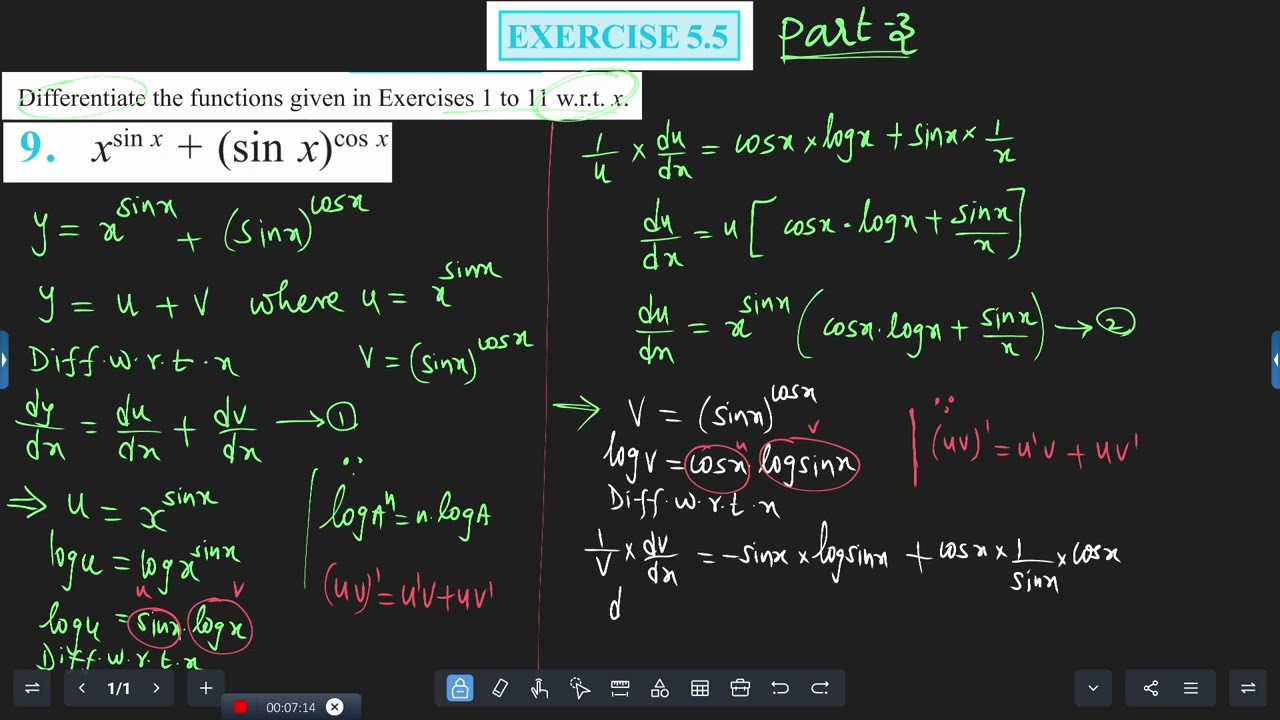 EXERCISE 5.5
Part-3
Differentiate the functions given in Exercises 1 to 11 w.r.t. x.
9. x^sin x + (sin x)^cos x
y = x^sinx + (sinx)^cosx
y = u + v where u = x^sinx
Diff.w.r.t.x v = (sinx)^cosx
dy/dx = du/dx + dv/dx → ①
⇒ u = x^sinx
logu = logx^sinx
u v
logu = sinx.logx
Diff.w.r.t.x
∵
logA^n = n.logA
(uv)' = u'v+uv'
1/u × du/dx = cosx × logx + sinx × 1/x
du/dx = u [cosx . logx + sinx/x]
du/dx = x^sinx (cosx.logx + sinx/x) → ②
⇒ v = (sinx)^cosx
u v
logv = cosx logsinx
Diff.w.r.t.x
∵
(uv)' = u'v + uv'
1/v × dv/dx = -sinx × logsinx + cosx × 1/sinx × cosx
d
1/1
00:07:14